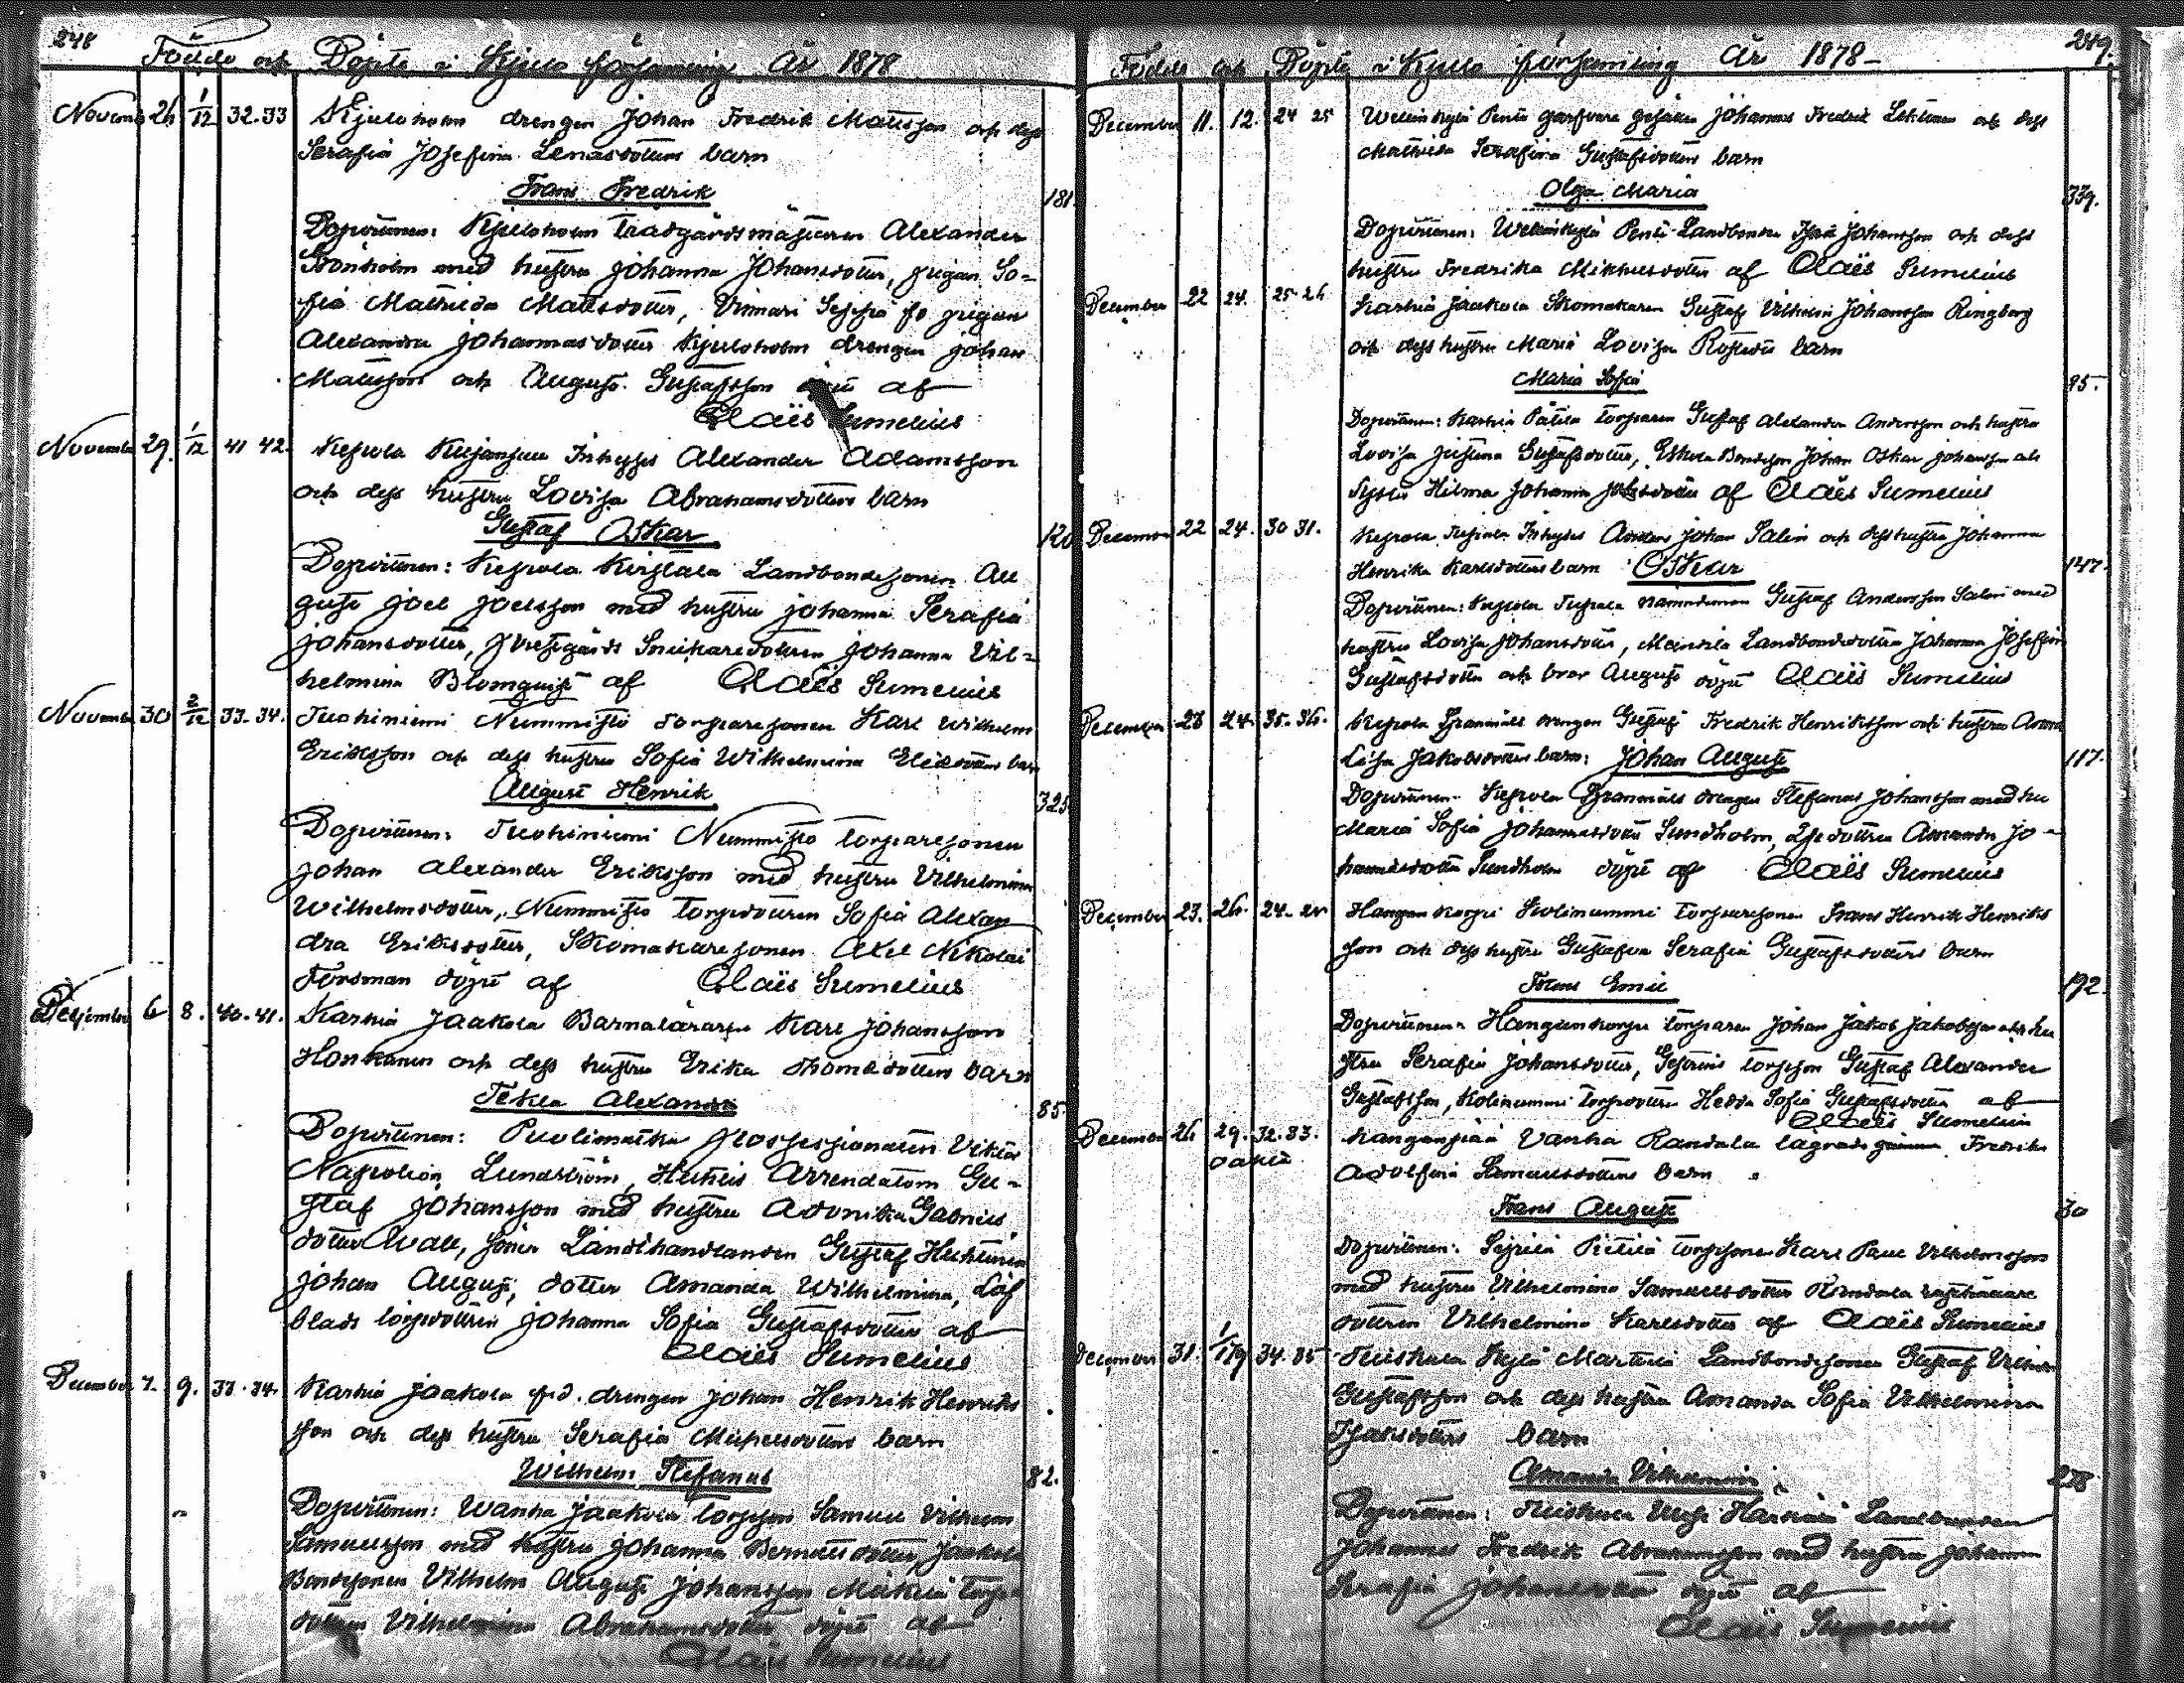 248
Födde och Döpte i Kjulo församling År 1878
Novemb 26 1/12 32-33 Kjuloholm drengen Johan Fredrik Mattsson och dess
Serafia Josefina Lenasdotters barn
Frans Fredrik 181
Dopvittnen: Kjuloholm trädgårdsmästaren Alexander
Grönholm med hustru Johanna Johansdotter, pigan So-
fia Mathilda Mattsdotter, Vinnari Seppä fd pigan
Alexandra Johannasdotter Kjuloholm drengen Johan
Mattsson och August Gustafsson af
Claës Sumelius
November 29. 1/12 41 42. Kepola Inhyses Alexander Adamsson
och dess hustru Lovisa Abrahamsdotters barn
Gustaf Oskar 120
Dopvittnen: Kepola Kirstala Landbondesonen Au
gust Joel Joelsson med hustru Johanna Serafia
Johansdotter, Prestgårds Snickaredottren Johanna Vil-
helmina Blomquist af Claës Sumelius
November 30 2/12 33-34. Tuohiniemi Nummisto torparesonen Karl Wilhelm
Eriksson och dess hustru Sofia Wilhelmina barn
August Henrik 325
Dopvittnen: Tuohiniemi Nummisto torparesonen
Johan Alexander Eriksson med hustru Vilhelmina
Wilhelmsdotter, Nummisto torpdottren Sofia Alexan
dra Eriksdotter, Skomakaresonen Axel Nikolai
Forsman döpt af Claës Sumelius
December 6 8. 40-41. Karhia Jaakola Barnaläraren Karl Johansson
Honkanen och dess hustru Erika Thomasdotters barn
Tekla Alexandra 85.
Dopvittnen: Puolimatka Possessionaten Viktor
Napoleon Lundström, Huhtis Arrendatorn Gu-
staf Johansson med hustru Adonika Gabriels
dotter Wall, söner Landthandlanden Gustaf Huhtinen
Johan August, dotter Amanda Wilhelmina, Löf
blads torpdottren Johanna Sofia Gustafsdotter af
Claës Sumelius
December 7. 9. 33-34. Karhia Jaakola fd. drengen Johan Henrik Henriks
son och dess hustru Serafia Mickelsdotters barn
Wilhelm Stefanus 82.
Dopvittnen: Wanha Jaakola torpson Samuel Vilhelm
Samuelsson med hustru Johanna Jaakola
Bondesonen Vilhelm August Johansson torp
dottren Vilhelmina Abrahamsdotter döpt af
Claës Sumelius
249.
Födde och Döpte i Kjulo församling År 1878
December 11. 12. 24 25 Wellinkylä Penti garfvare gesällen Johannes Fredrik och dess
Mathilda Serafina Gustafsdotters barn
Olga Maria 339.
Dopvittnen: Wellinkylä Penti Landbonden Isak Johansson och dess
hustru Fredrika af Claës Sumelius
December 22 24. 25-26 Karhia Jaakola Skomakaren Gustaf Vilhelm Johansson Ringberg
och dess hustru Maria Lovisa barn
Maria Sofia 95.
Dopvittnen: Karhia torparen Gustaf Alexander Andersson och hustru
Lovisa Justina Gustafsdotter, Bondeson Johan Oskar Johansson och
Syster Hilma Johanna af Claës Sumelius
December 22 24. 30 31. Kepola Inhyses Anders Johan Salin och dess hustru Johanna
Henrika Karlsdotters barn Oskar 147.
Dopvittnen: Kepola nämndeman Gustaf Andersson Salin med
hustru Lovisa Johansdotter, Landbondedottren Johanna Josefin
Gustafsdotter och bror August döpt Claës Sumelius
December 23 24. 35-36. Kepola drengen Gustaf Fredrik Henriksson och hustru Anna
Lisa Jakobsdotters barn: Johan August 117.
Dopvittnen: Kepola drengen Stefanus Johansson med hu
Maria Sofia Johannesdotter Sundholm, dottren Amanda Jo-
hannesdotter Sundholm döpt af Claës Sumelius
December 23. 26. 24-25 Hangankorpi Kolinummi torparesonen Frans Henrik Henriks
son och dess hustru Gustafva Serafia Gustafsdotters barn
Frans Emil 192.
Dopvittnen: Hangankorpi torparen Johan Jakob Jakobsson och hu
stru Serafia Johansdotter, torpson Gustaf Alexander
Gustafsson, Kolinummi torpdottren Hedda Sofia Gustafsdotter af
Claës Sumelius
December 26 29. 32-33. Kanganpää Vanha Randala lägrade qvinnan Fredrika
oäkta
Adolfina Samuelsdotters barn
Frans August 30
Dopvittnen: torpsonen Karl Vilhelmsson
med hustru Vilhelmina Samuelsdotter Randala
dottren Vilhelmina Karlsdotter af Claës Sumelius
December 31. 1/1 79 34-35 Tuiskula Kylä Marttila Landbondesonen Gustaf Vilhelm
Gustafsson och dess hustru Amanda Sofia Vilhelmina
Isaksdotters barn
Amanda Vilhelmina 278
Dopvittnen: Tuiskula Landbonden
Johannes Fredrik Abrahamsson med hustru Johanna
Serafia Johansdotter döpt af
Claës Sumelius